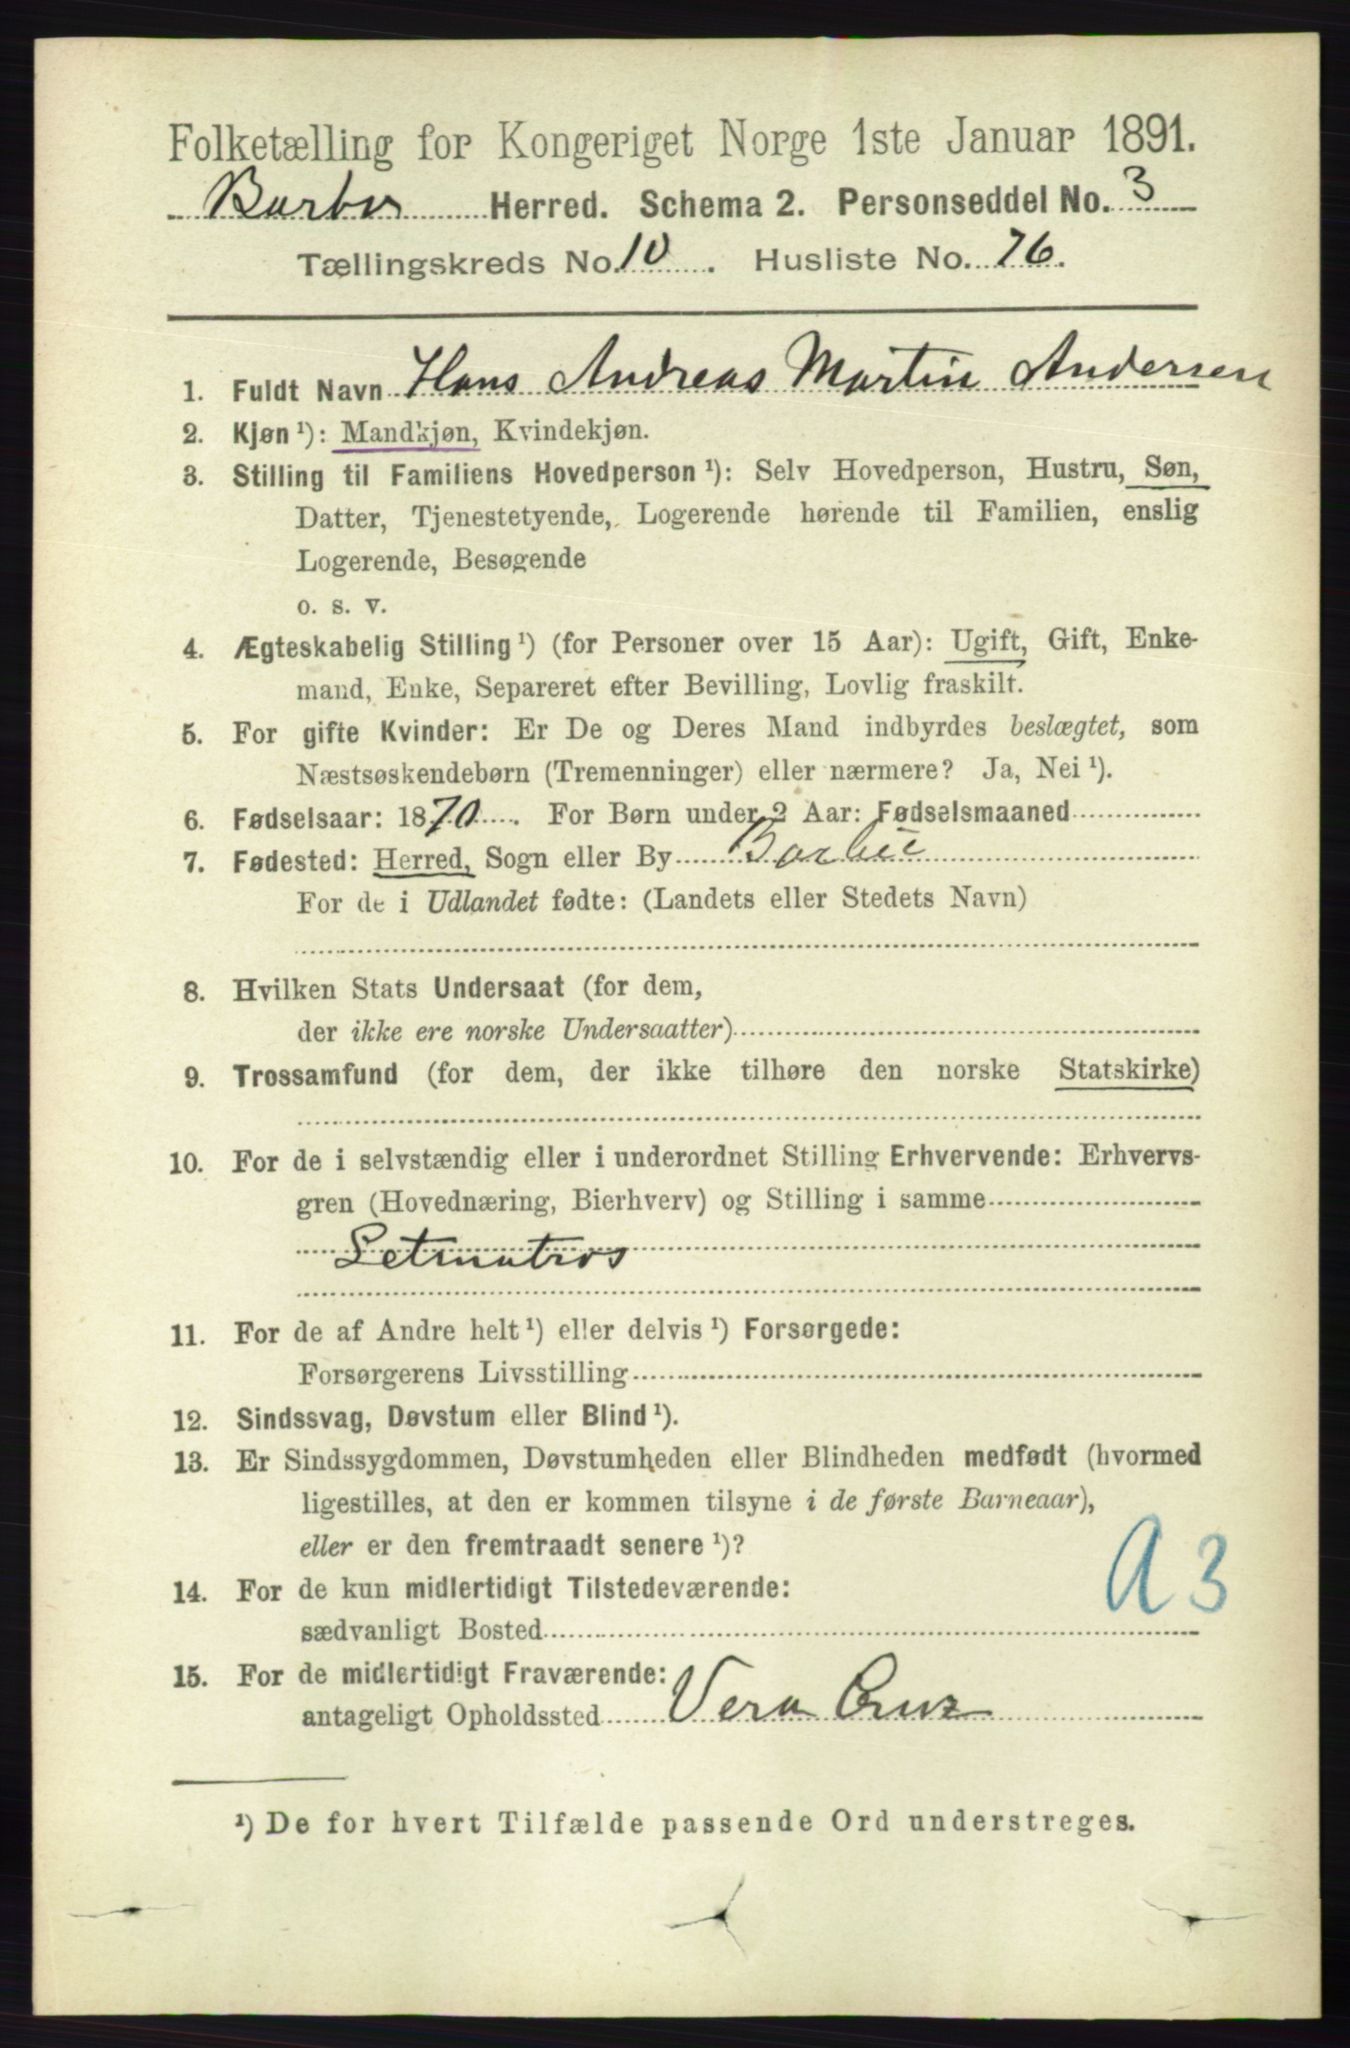 Folketælling for Kongeriget Norge 1ste Januar 1891.
Barbo Herred. Schema 2. Personseddel No. 3
Tællingskreds No. 10. Husliste No. 76.
1. Fuldt Navn Hans Andreas Martin Andersen
2. Kjøn ¹): Mandkjøn, Kvindekjøn.
3. Stilling til Familiens Hovedperson ¹): Selv Hovedperson, Hustru, Søn,
Datter, Tjenestetyende, Logerende hørende til Familien, enslig
Logerende, Besøgende
o. s. v.
4. Ægteskabelig Stilling ¹) (for Personer over 15 Aar): Ugift, Gift, Enke-
mand, Enke, Separeret efter Bevilling, Lovlig fraskilt.
5. For gifte Kvinder: Er De og Deres Mand indbyrdes beslægtet, som
Næstsøskendebørn (Tremenninger) eller nærmere? Ja, Nei ¹).
6. Fødselsaar: 1870. For Børn under 2 Aar: Fødselsmaaned
7. Fødested: Herred, Sogn eller By Barbu
For de i Udlandet fødte: (Landets eller Stedets Navn)
8. Hvilken Stats Undersaat (for dem,
der ikke ere norske Undersaatter)
9. Trossamfund (for dem, der ikke tilhøre den norske Statskirke)
10. For de i selvstændig eller i underordnet Stilling Erhvervende: Erhvervs-
gren (Hovednæring, Bierhverv) og Stilling i samme
Letmatros
11. For de af Andre helt ¹) eller delvis ¹) Forsørgede:
Forsørgerens Livsstilling
12. Sindssvag, Døvstum eller Blind ¹).
13. Er Sindssygdommen, Døvstumheden eller Blindheden medfødt (hvormed
ligestilles, at den er kommen tilsyne i de første Barneaar),
eller er den fremtraadt senere ¹)?
A 3
14. For de kun midlertidigt Tilstedeværende:
sædvanligt Bosted
15. For de midlertidigt Fraværende:
antageligt Opholdssted Vera Cruz
¹) De for hvert Tilfælde passende Ord understreges.